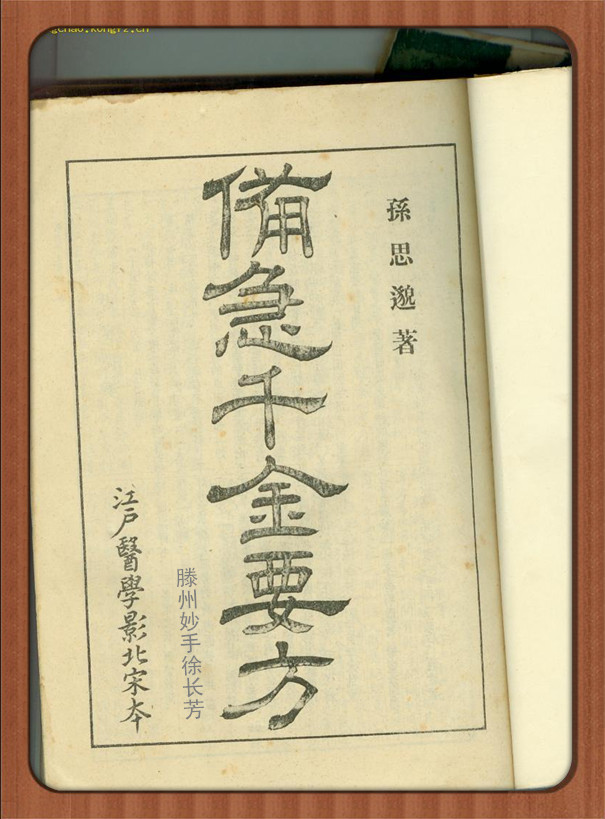 孫思邈著
備急千金要方
滕州妙手徐长芳
江戸醫學影北宋本